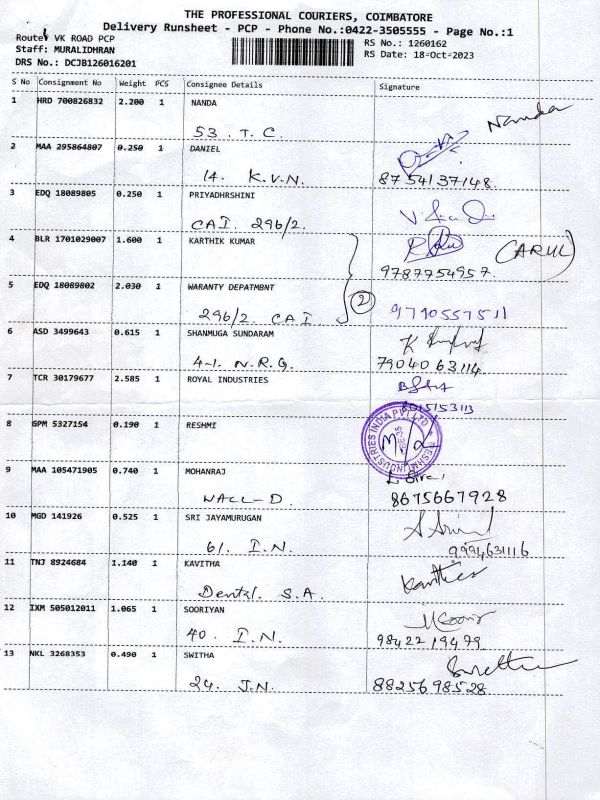 THE PROFESSIONAL COURIERS, COIMBATORE
Delivery Runsheet - PCP - Phone No.:0422-3505555 - Page No.:1
Route: VK ROAD PCP
Staff: MURALIDHRAN
DRS No.: DCJB126016201
RS No.: 1260162
RS Date: 18-Oct-2023
S No Consignment No Weight PCS Consignee Details Signature
1 HRD 700826832 2.200 1 NANDA
Nanda
53. T. C.
2 MAA 295864807 0.250 1 DANIEL
14. K.V.N. 8754137148
3 EDQ 18089805 0.250 1 PRIYADHRSHINI
CAI. 296/2.
4 BLR 1701029007 1.600 1 KARTHIK KUMAR
(ARUL)
9787754957
5 EDQ 18089802 2.030 1 WARANTY DEPATMBNT
2
296/2. CAI 9790557511
6 ASD 3499643 0.615 1 SHANMUGA SUNDARAM
4-1. N.R.G. 7904063114
7 TCR 30179677 2.585 1 ROYAL INDUSTRIES
8015153113
8 GPM 5327154 0.190 1 RESHMI
INDUSTRIES INDIA PVT LTD
9 MAA 105471905 0.740 1 MOHANRAJ
NALL-D. 8675667928
10 MGD 141926 0.525 1 SRI JAYAMURUGAN
61. I.N. 9994631116
11 TNJ 8924684 1.140 1 KAVITHA
Dental. S.A.
12 IXM 505012011 1.065 1 SOORIYAN
40. I.N. 98422 19479
13 NKL 3268353 0.490 1 SWITHA
24. J.N. 8825698528